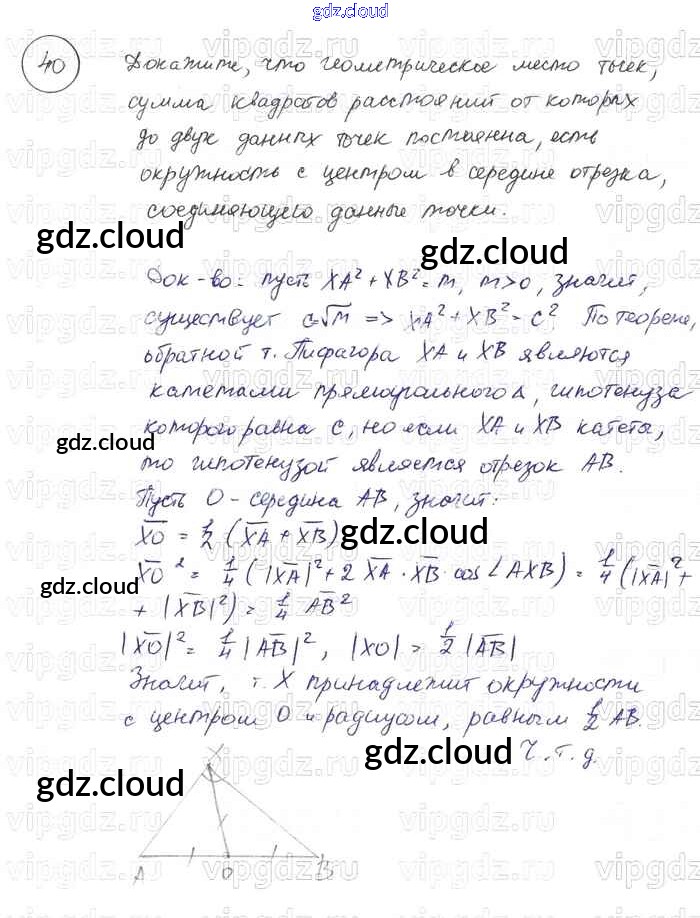 gdz.cloud
40 Докажите, что геометрическое место точек,
сумма квадратов расстояний от которых
до двух данных точек постоянна, есть
окружность с центром в середине отрезка,
соединяющего данные точки.
gdz.cloud
gdz.cloud
Док-во: пусть XA² + XB² = m, m>0, значит,
существует c=√m => XA² + XB² = c². По теореме,
обратной т. Пифагора XA и XB являются
катетами прямоугольного Δ, гипотенуза
которого равна c, но если XA и XB катета,
gdz.cloud
gdz.cloud
то гипотенузой является отрезок AB.
Пусть O - середина AB, значит:
XO = 1/2 (XA + XB)
gdz.cloud
XO² = 1/4 (|XA|² + 2 XA · XB · cos ∠AXB) = 1/4 (|XA|² +
gdz.cloud
+ |XB|²) = 1/4 AB²
|XO|² = 1/4 |AB|², |XO| = 1/2 |AB|
gdz.cloud
Значит, т. X принадлежит окружности
с центром O и радиусом, равным 1/2 AB.
Ч.т.д.
gdz.cloud
gdz.cloud
X
A O B